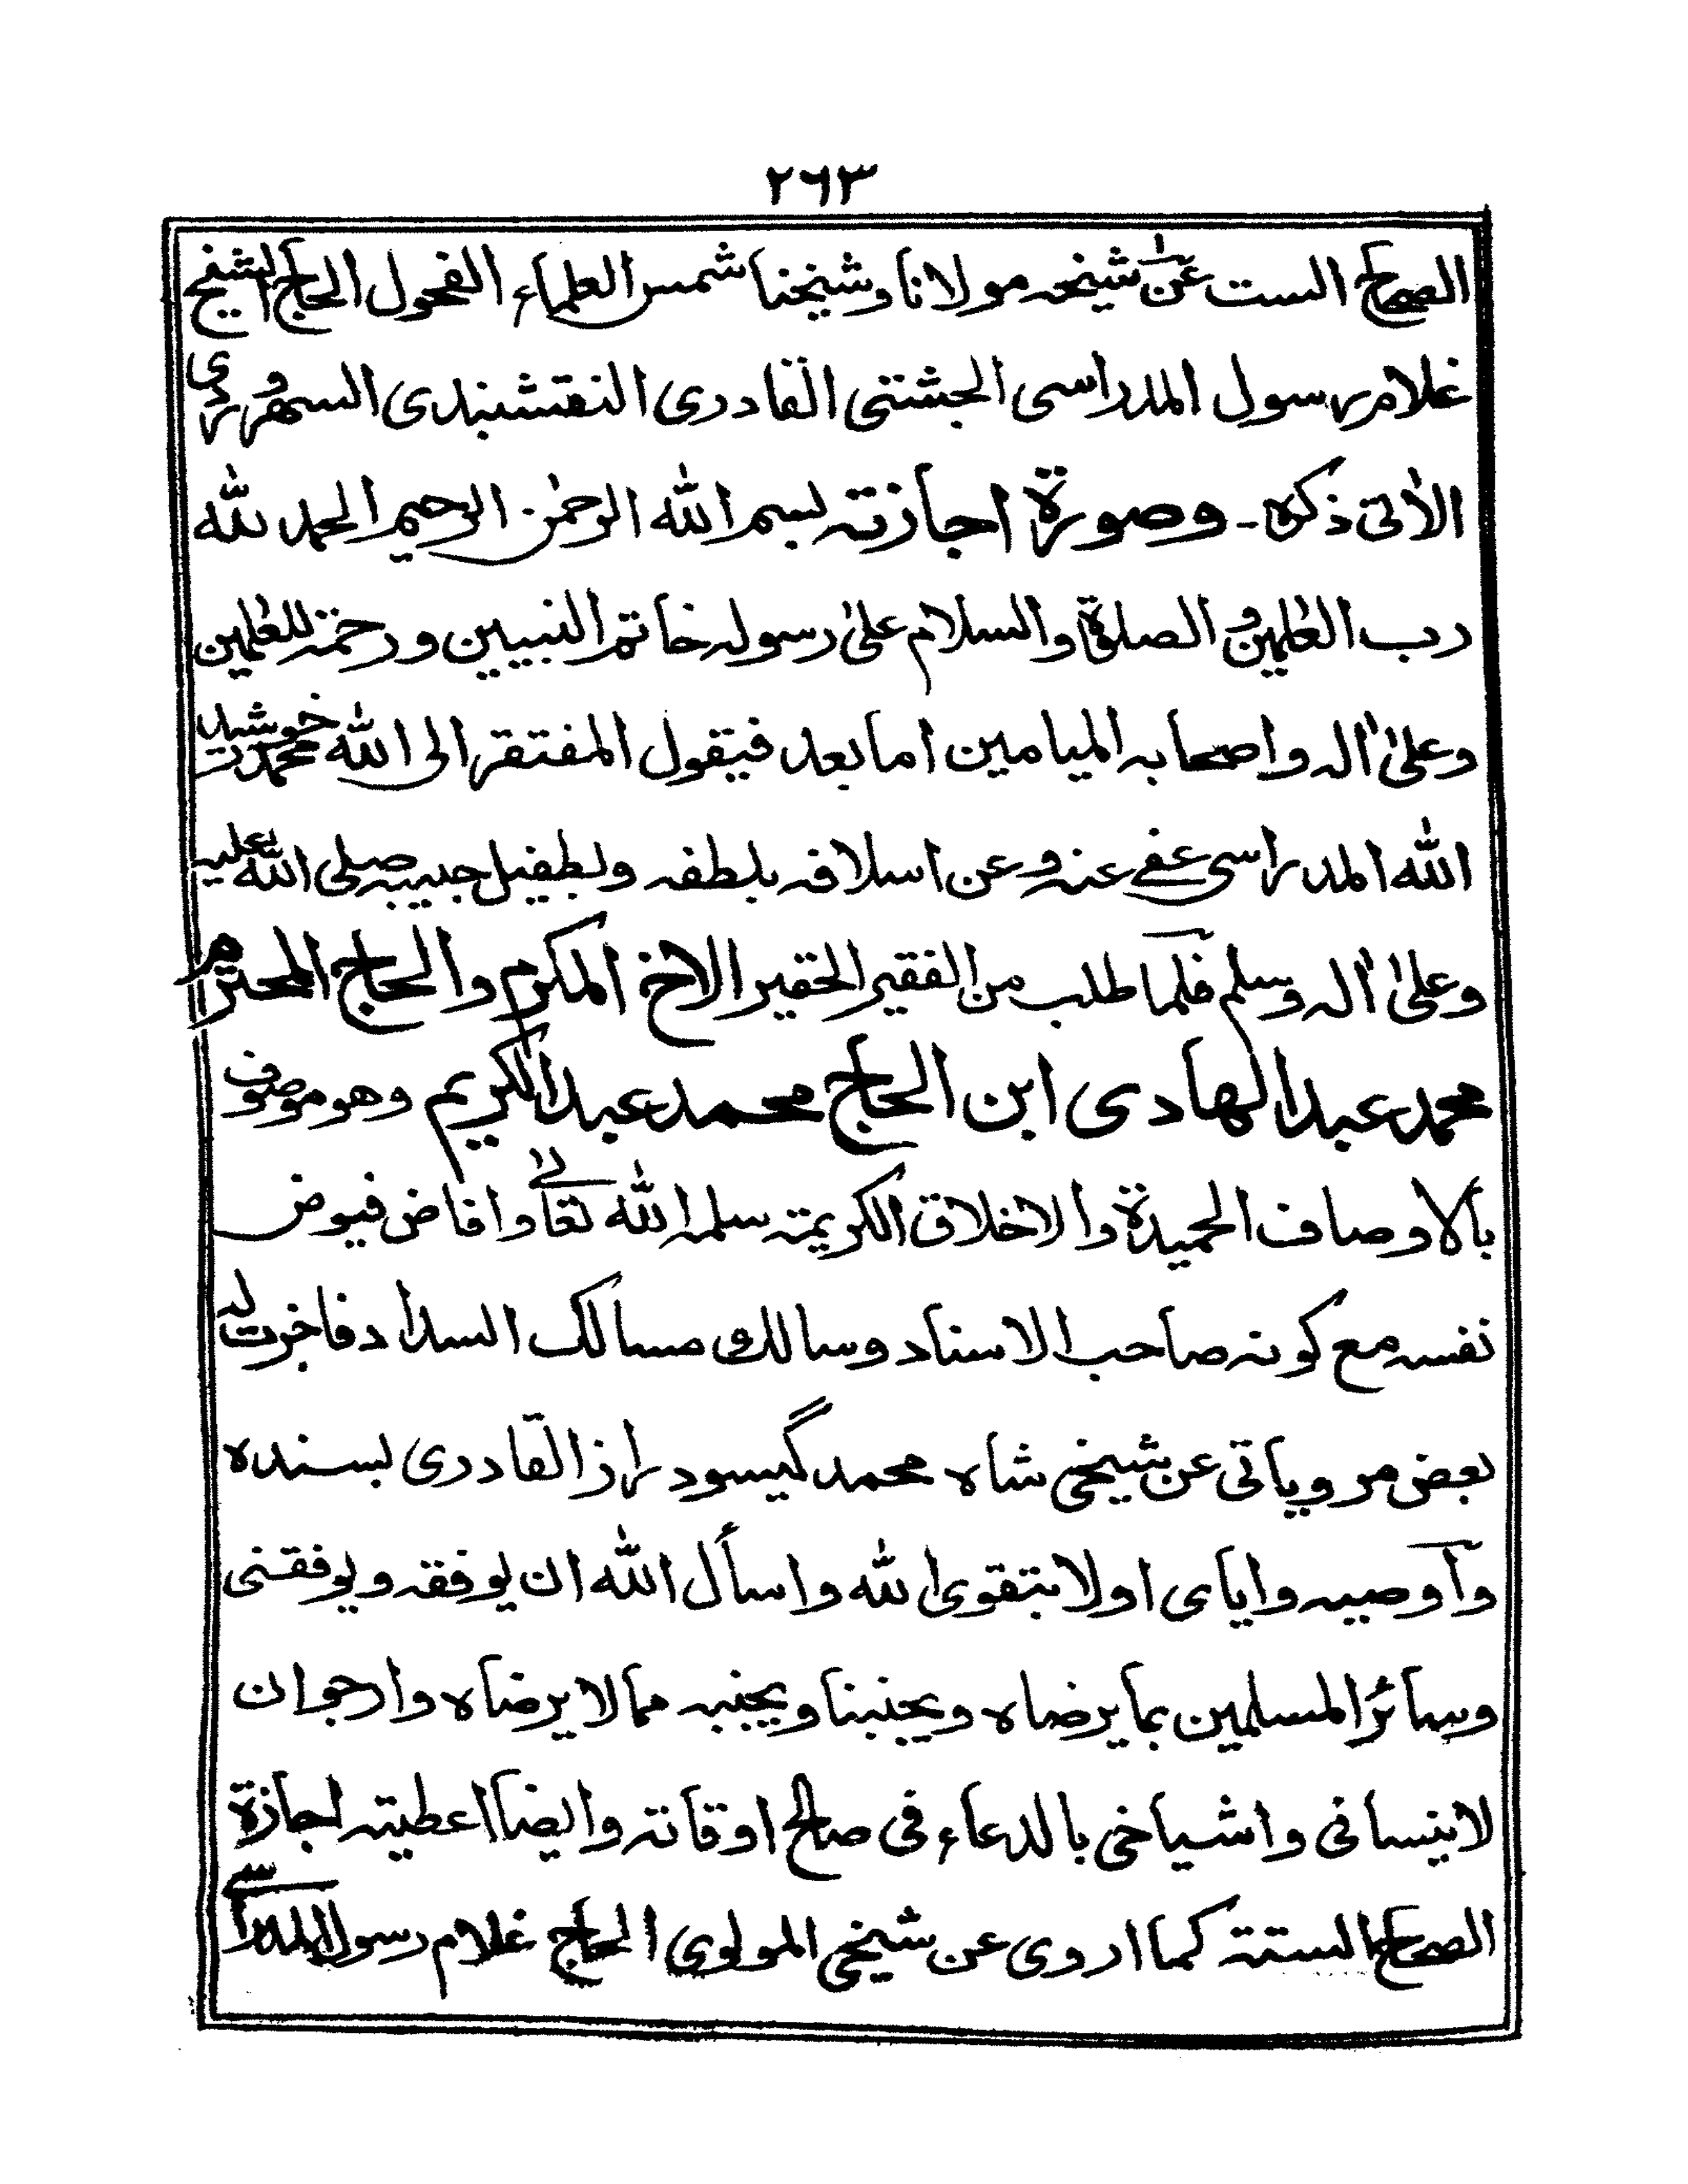 ٢٦٣
الصحاح الست عن شيخه مولانا وشيخنا شمس العلماء الفحول الحاج الشيخ
غلام رسول المدراسى الجشتى القادرى النقشبندى السهروردى
الاٰتى ذكره ۔ وصورة اجازته بسم الله الرحمٰن الرحيم الحمد لله
رب العٰلمين والصلوة والسلام علىٰ رسوله خاتم النبيين ورحمة للعٰلمين
وعلىٰ اٰله واصحابه الميامين اما بعد فيقول المفتقر الى الله محمد خورشيد
الله المدراسى عفے عنه وعن اسلافه بلطفه وبطفيل حبيبه صلى الله عليه
وعلىٰ اٰله وسلم فلما طلب من الفقير الحقير الاخ المكرم والحاج المحترم
محمد عبد الهادى ابن الحاج محمد عبد الكريم وهو موصوف
بالاوصاف الحميدة والاخلاق الكريمة سلمه الله تعالےٰ وافاض فيوض
نفسه مع كونه صاحب الاسناد وسالك مسالك السداد فاخرت له
بعض مروياتى عن شيخى شاه محمد گيسودراز القادرى بسنده
وآوصيه واياى اولا بتقوى الله واسأل الله ان يوفقه ويوفقنى
وسائر المسلمين بما يرضاه ويجنبنا ويجنبه مما لا يرضاه وارجو ان
لا ينسانى واشياخى بالدعاء فى صالح اوقاته وايضا اعطيته اجازة
الصحاح الستة كما اروى عن شيخى المولوى الحاج غلام رسول المدراسے